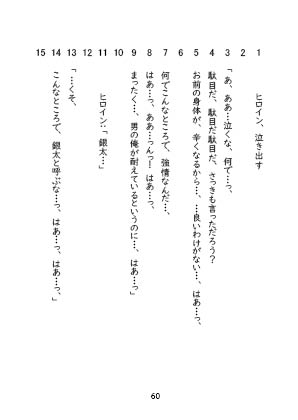 1 ヒロイン、泣き出す
2
3 「あ、ああ…泣くな、何で…っ、
4 駄目だ、駄目だ駄目だ、さっきも言っただろう？
5 お前の身体が、辛くなるから…、…良いわけがない…、はあ…っ、
6
7 何でこんなところで、強情なんだ…、
8 はあ…っ、ああ…っんっ！はあ…っ、
9 まったく…、男の俺が耐えているというのに…、はあ…っ」
10
11 ヒロイン：「銀太…」
12
13 「…くそ、
14 こんなところで、銀太と呼ぶな…っ、はあ…っ、はあ…っ、」
15
60